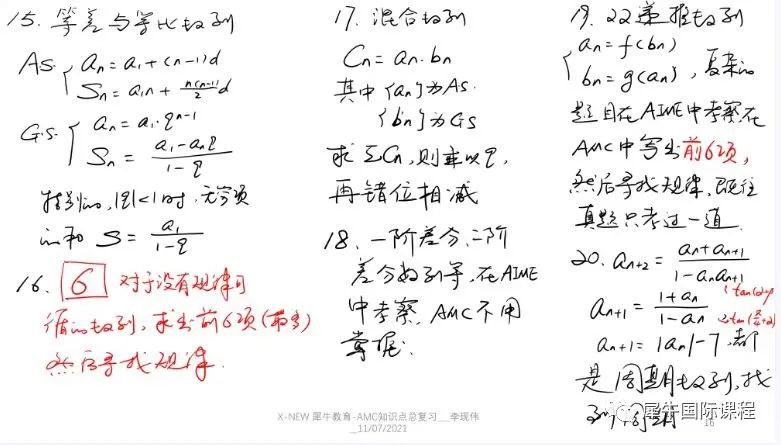 15. 等差与等比数列
AS. { an = a1 + (n-1)d
Sn = a1n + n(n-1)/2 d
G.S. { an = a1·q^(n-1)
Sn = (a1 - anq)/(1-q)
特别的, |q|<1时, 无穷项
的和 S = a1/(1-q)
16. 6 对于没有规律可
循的数列, 求出前6项(最多)
然后寻找规律.
17. 混合数列
Cn = an·bn
其中{an}为AS.
{bn}为GS
求ΣCn, 则乘以q,
再错位相减
18. 一阶差分、二阶
差分数列等, 在AIME
中考察, AMC不用
掌握.
19. 双递推数列
{ an = f(bn)
bn = g(an) , 复杂的
题目在AIME中考察在
AMC中写出前6项,
然后寻找规律, 既往
真题只考过一道.
20. an+2 = (an + an+1)/(1 - an an+1)
an+1 = (1+an)/(1-an)
an+1 = |an| - 7, 都
是周期数列, 找
到周期
X-NEW 犀牛教育-AMC知识点总复习__李现伟
_11/07/2021
犀牛国际课程
16